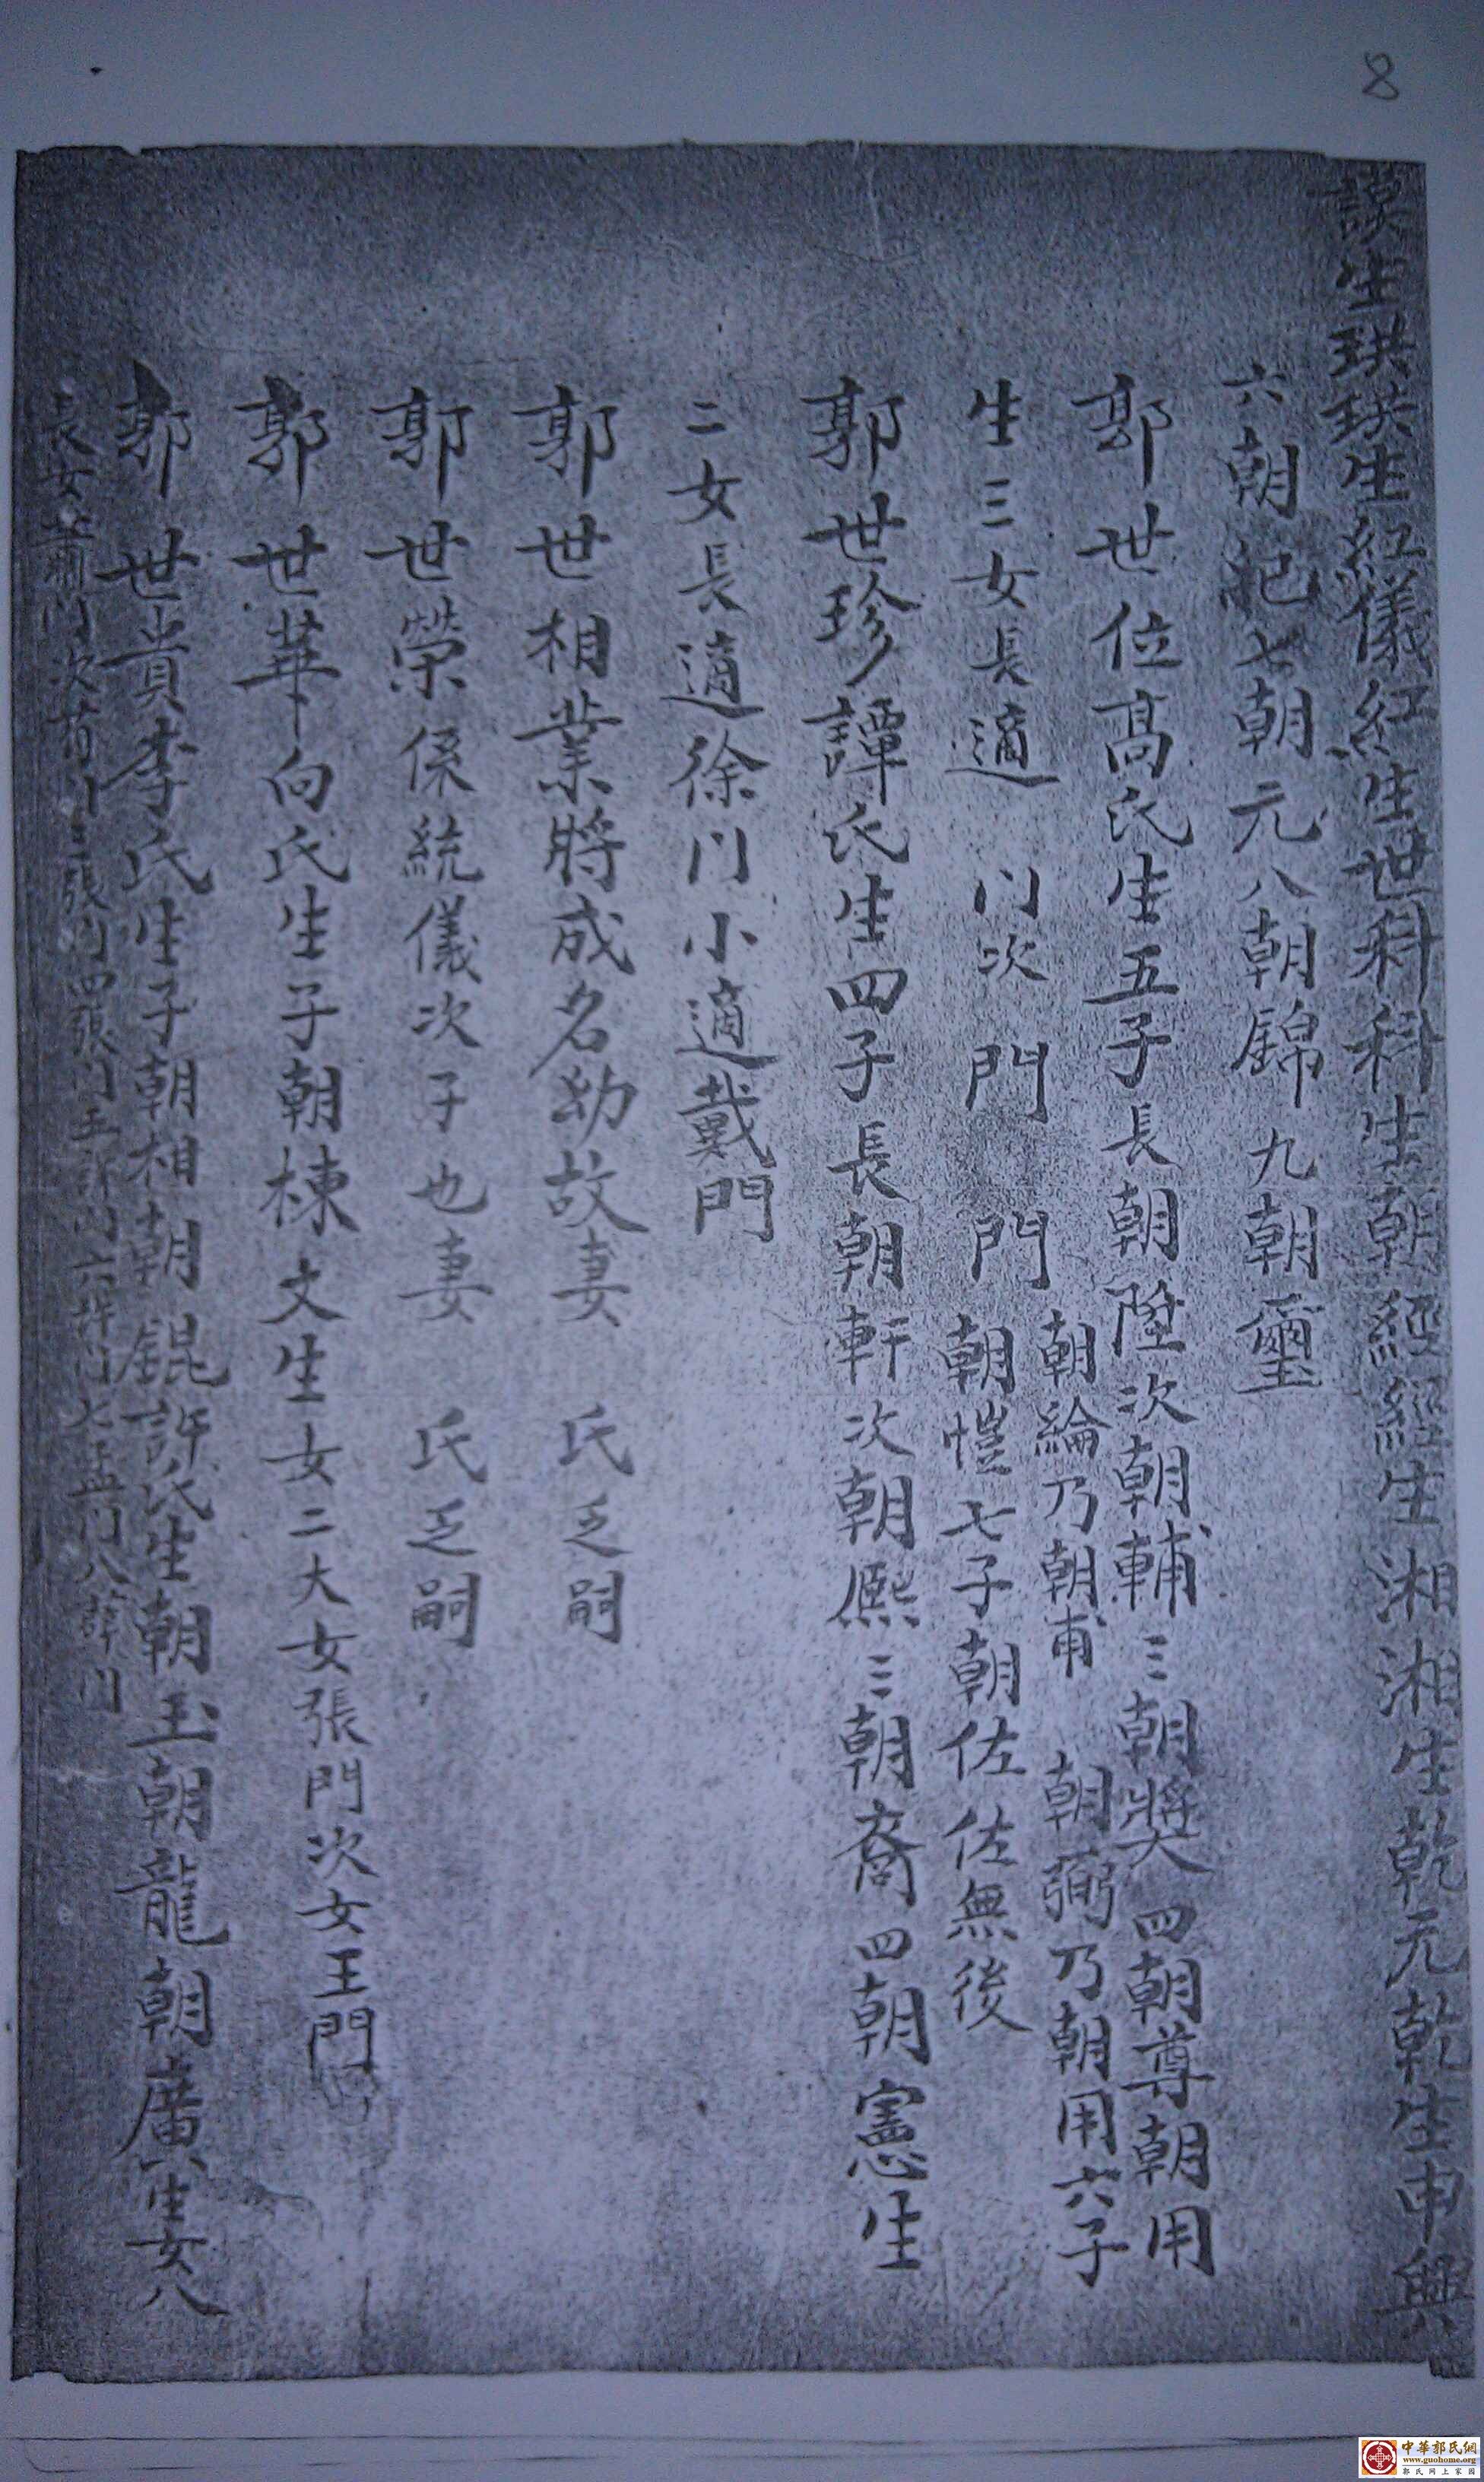 8
謨生珙珙生紅儀紅生世科科生朝經經生湘湘生乾元乾生申興
六朝紀七朝元八朝錦九朝璽
郭世位高氏生五子長朝陞次朝輔三朝奬四朝尊朝用
朝綸乃朝甫 朝弼乃朝用六子
生三女長適 門次 門 門朝愷七子朝佐佐無後
郭世珍譚氏生四子長朝軒次朝熙三朝裔四朝憲生
二女長適徐门小適戴門
郭世相業將成名幼故妻 氏乏嗣
郭世榮係統儀次子也妻 氏乏嗣
郭世華向氏生子朝棟文生女二大女張門次女王門
郭世貴李氏生子朝相朝錕許氏生朝玉朝龍朝廣生女八
長女蕭门次门三張门四張门五許门六许门七孟门八薛门
中華郭氏網
www.guohome.org
郭氏网上家园